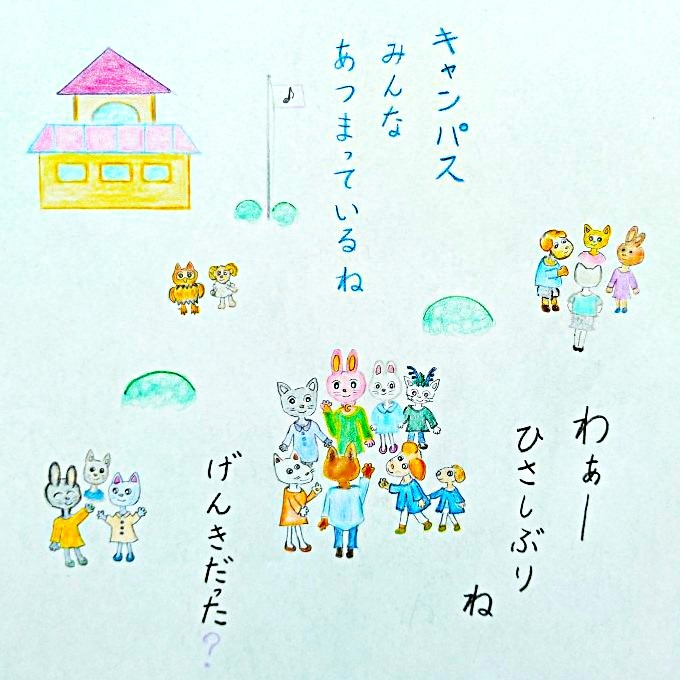 キャンパス
みんな
あつまっているね
わぁー
ひさしぶり
ね
げんきだった?